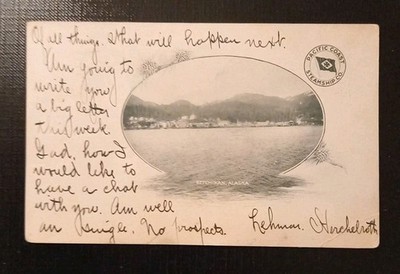 Of all things. What will happen next.
Am going to
write you
a big letter
this week
Gad, how I
would like to
have a chat
with you. Am well
an single. No prospects.
Lehman. Herchelroth
PACIFIC COAST
STEAMSHIP CO.
KETCHIKAN, ALASKA.